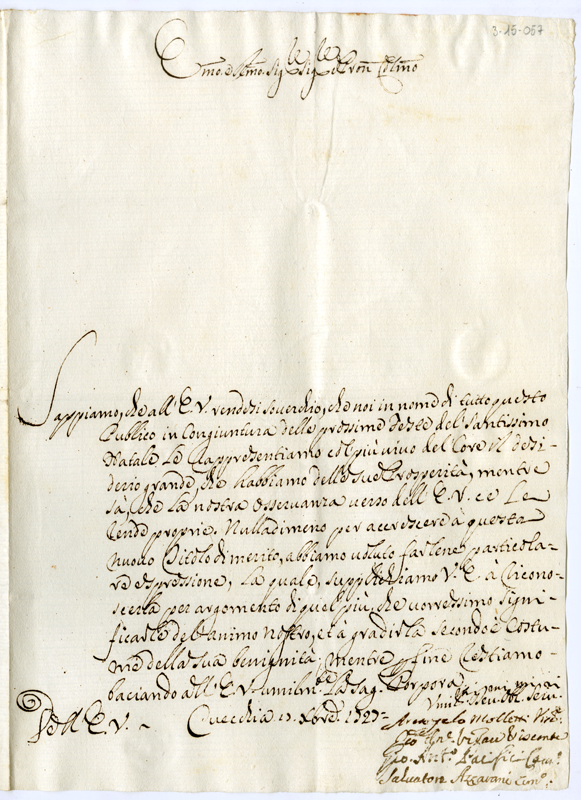 3-15-057
Emo. e Rmo. Sig.re Sig.re e Pron Colmo
Sappiamo, che all' E.V. rendesi soverchio, che noi in nome di tutto questo
Publico in Congiuntura delle prossime Feste del Santissimo
Natale Le Rappresentiamo col più vivo del Core il desi-
derio grande, che habbiamo delle sue Prosperità, mentre
sà, che la nostra osservanza verso dell' E.V. ce Le
rende proprie. Nulladimeno per accrescere à questa
nuovo Titolo di merito, abbiamo voluto farlene particola-
re espressione, La quale, supplichiamo V.E. à ricono-
scerla per argomento di quel più, che vorressimo signi-
ficarle del' animo Nostro, et à gradirla secondo il Costu-
me della Sua benignità; mentre p fine restiamo
baciando all' E.V. umilmte. La Sag. Porpora.
Dell' E.V. -
Vmil.
Arcangelo Vice.
Gio
Gio. Ant.o Pacifici
Salvatore